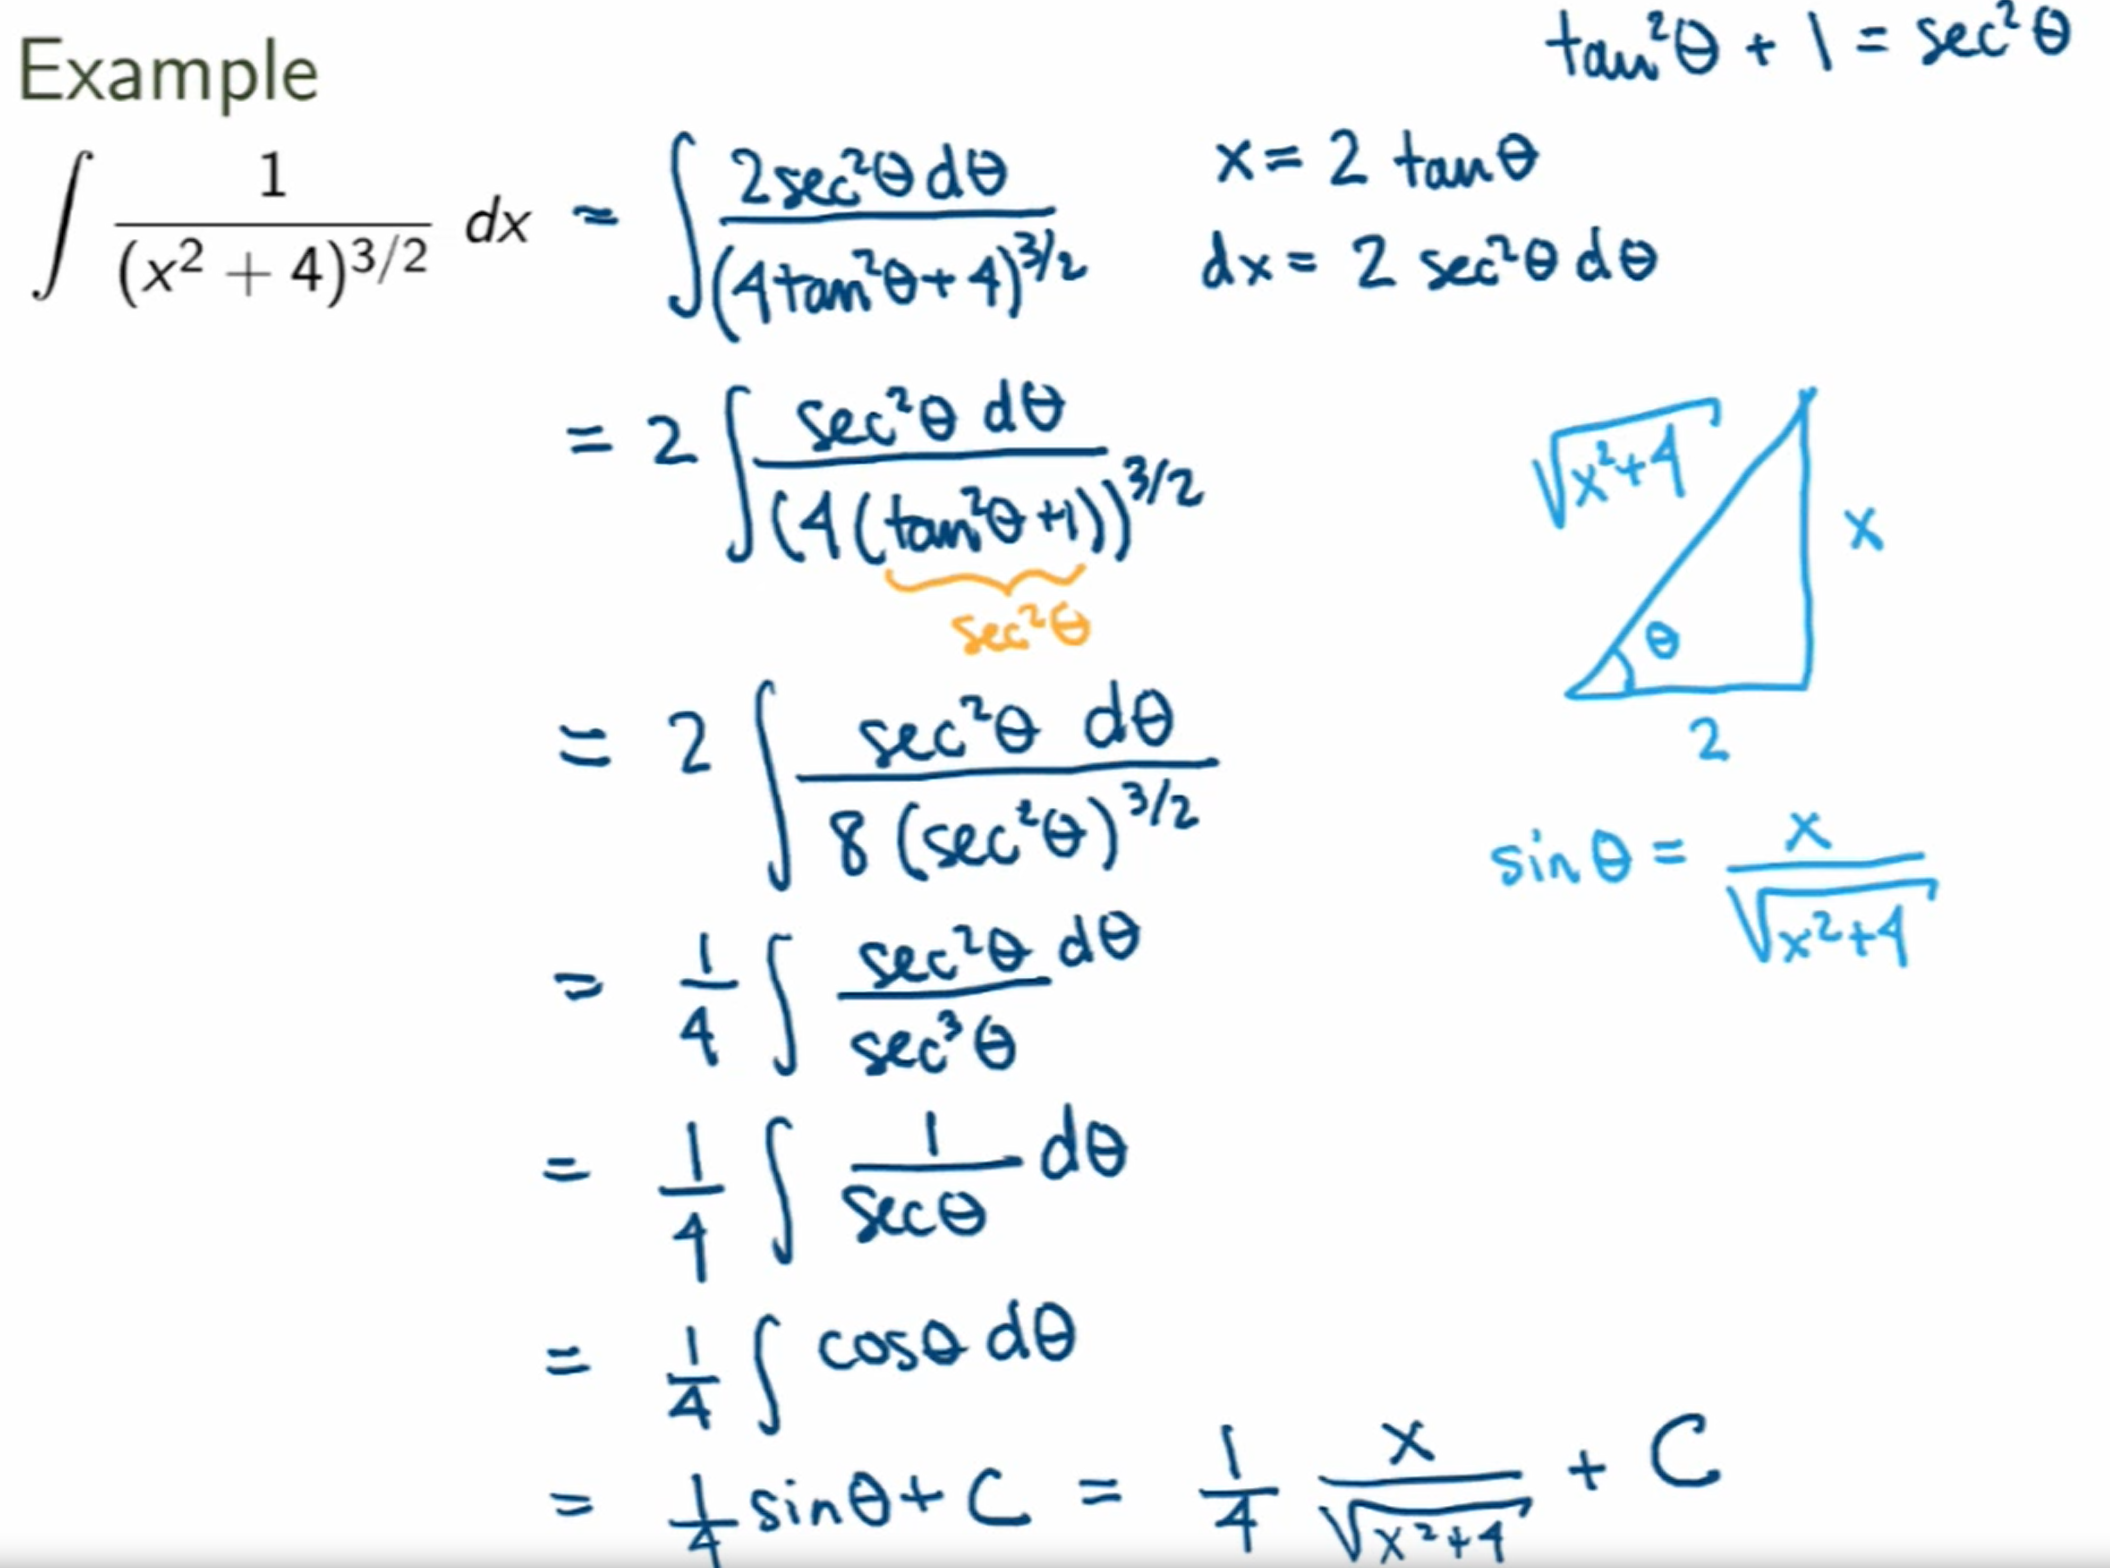 tan²θ + 1 = sec²θ
Example
∫ 1/(x² + 4)^{3/2} dx = ∫ 2sec²θ dθ/(4tan²θ + 4)^{3/2}
x = 2 tanθ
dx = 2 sec²θ dθ
= 2 ∫ sec²θ dθ/(4(tan²θ + 1))^{3/2}
sec²θ
√(x²+4)
x
θ
2
= 2 ∫ sec²θ dθ/8(sec²θ)^{3/2}
sin θ = x/√(x²+4)
= 1/4 ∫ sec²θ/sec³θ dθ
= 1/4 ∫ 1/secθ dθ
= 1/4 ∫ cosθ dθ
= 1/4 sinθ + C = 1/4 x/√(x²+4) + C